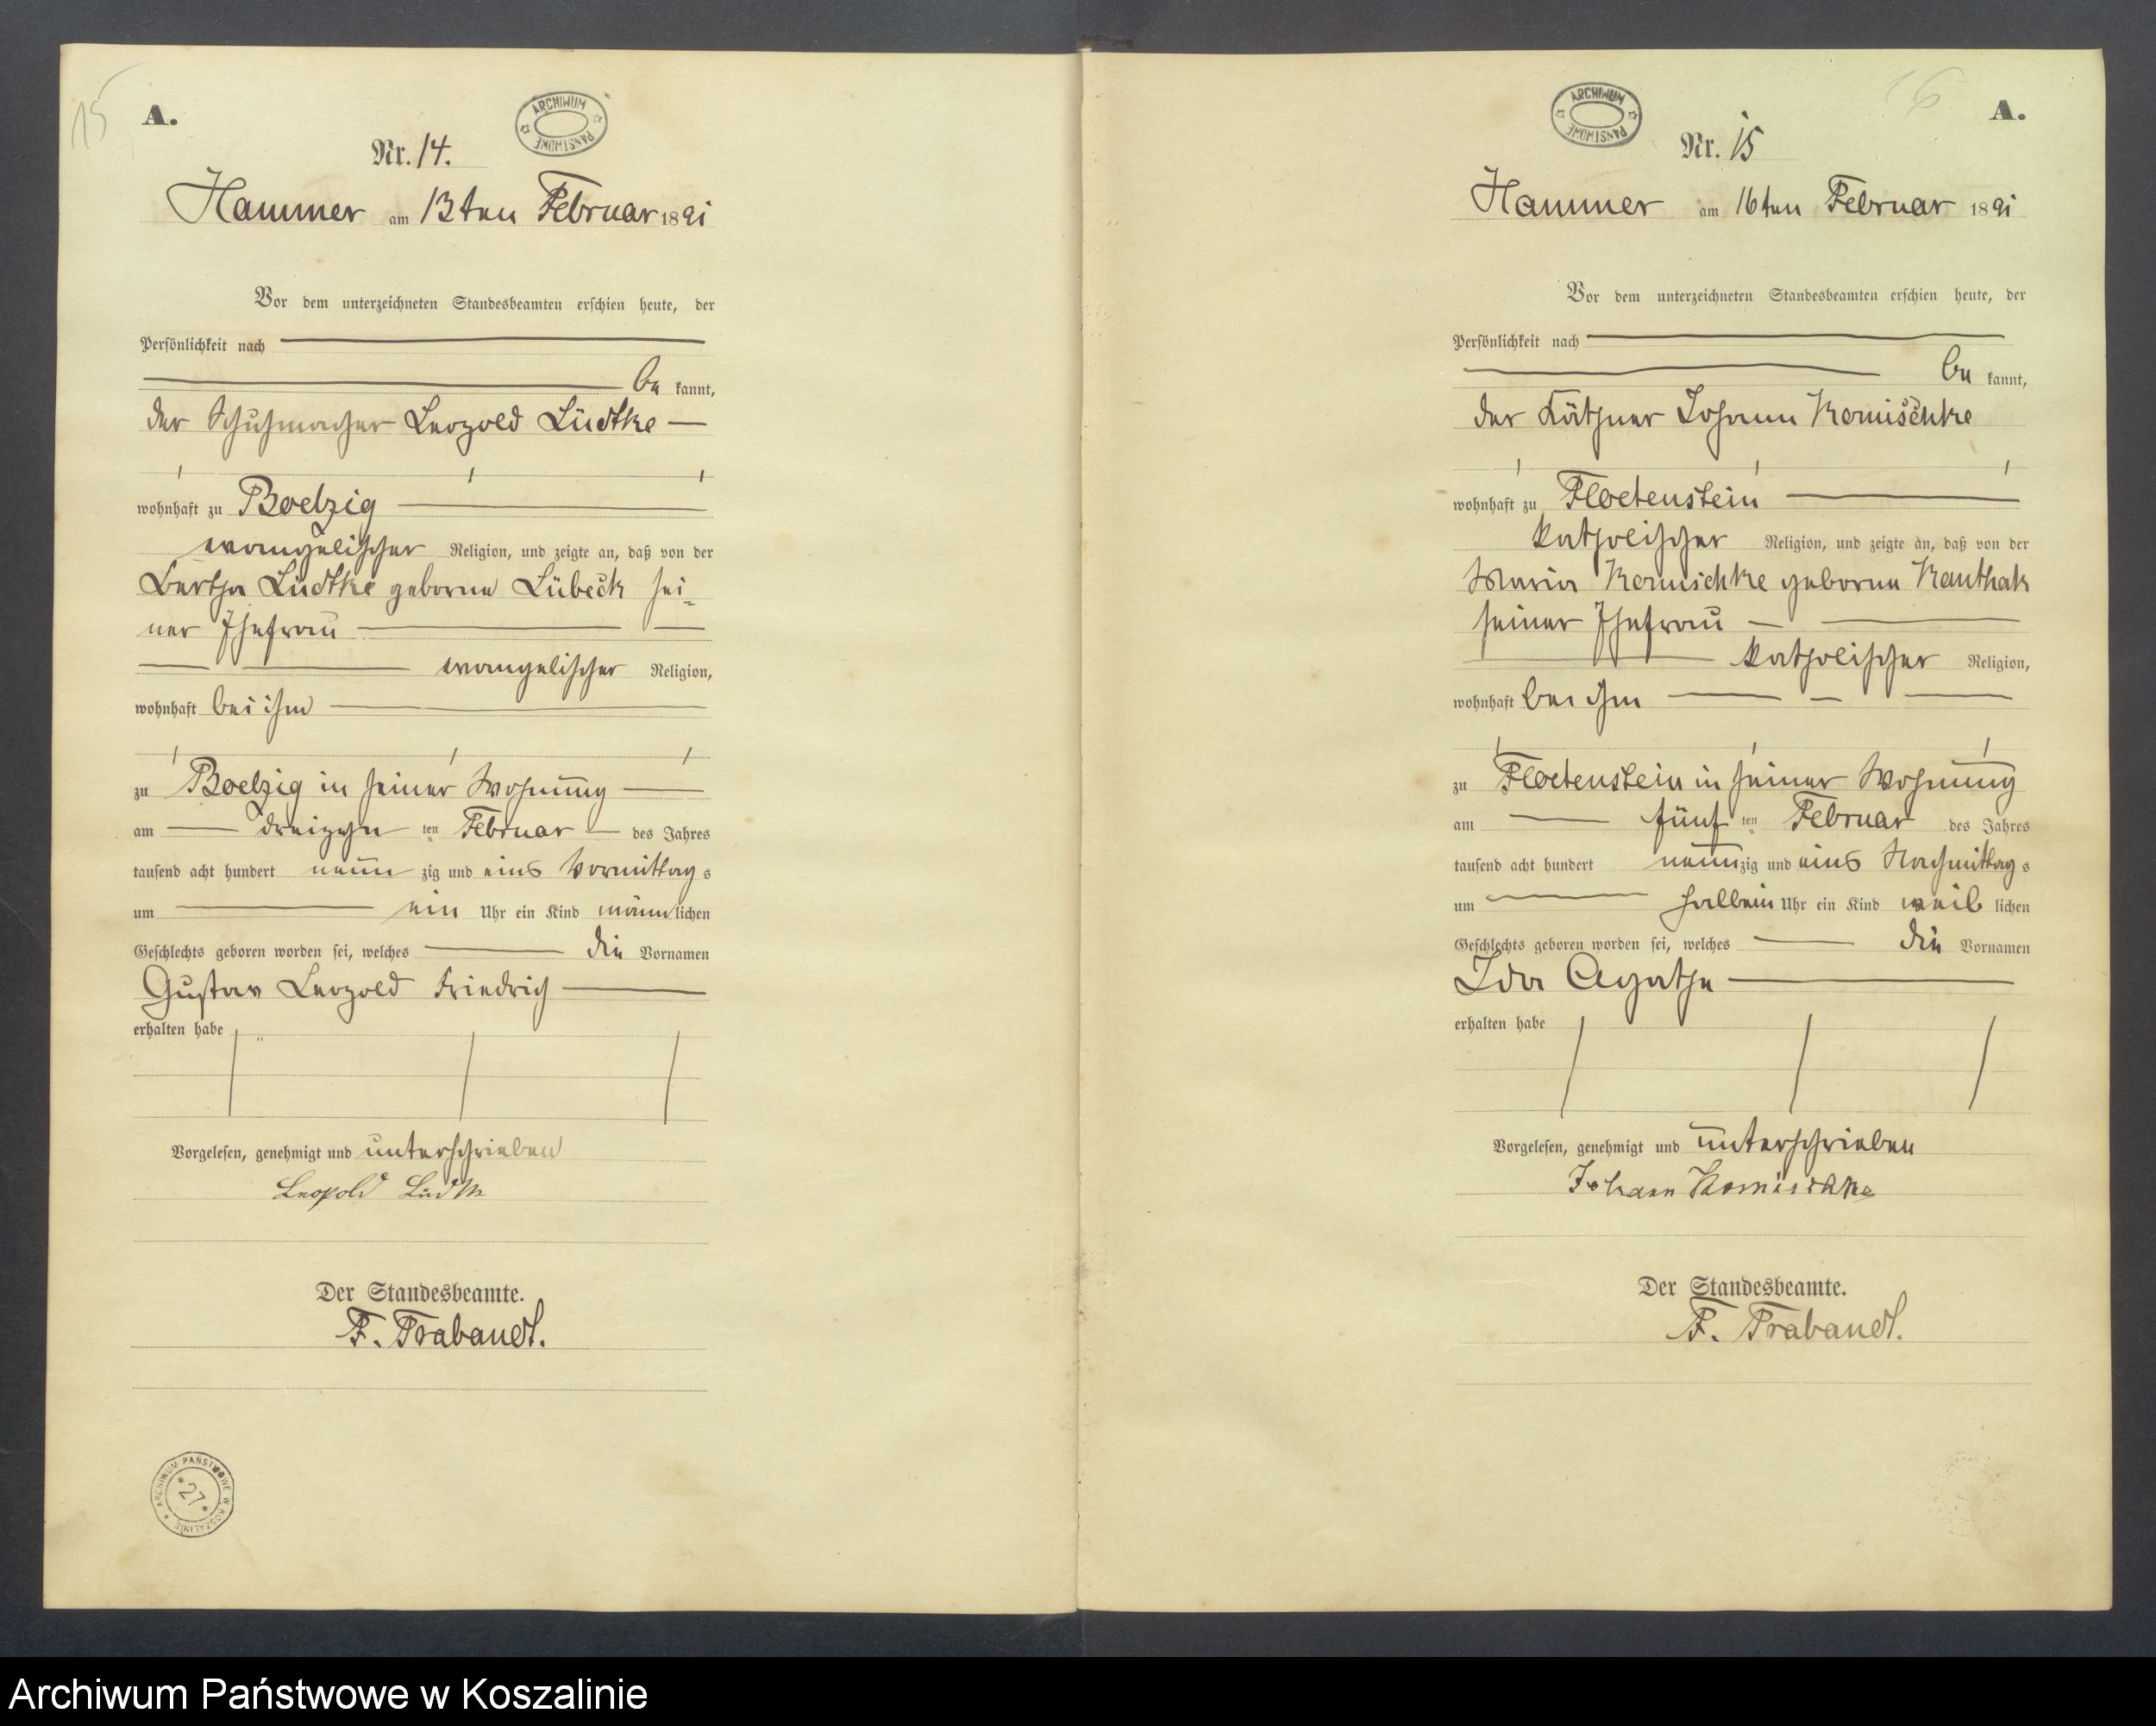 15
A.
ARCHIWUM PAŃSTWOWE
Nr. 14.
Hammer am 13ten Februar 1891
Vor dem unterzeichneten Standesbeamten erschien heute, der
Persönlichkeit nach
be kannt,
der Schuhmacher Leopold Lüdtke
wohnhaft zu Boelzig
evangelischer Religion, und zeigte an, daß von der
Bertha Lüdtke geborne Lübeck sei-
ner Ehefrau
evangelischer Religion,
wohnhaft bei ihm
zu Boelzig in seiner Wohnung
am dreizehn ten Februar des Jahres
tausend acht hundert neun zig und eins Vormittag s
um ein Uhr ein Kind männ lichen
Geschlechts geboren worden sei, welches die Vornamen
Gustav Leopold Friedrich
erhalten habe
Vorgelesen, genehmigt und unterschrieben
Leopold Lüdtke
Der Standesbeamte.
F. Trabandt.
ARCHIWUM PAŃSTWOWE W KOSZALINIE
27
16
A.
ARCHIWUM PAŃSTWOWE
Nr. 15
Hammer am 16ten Februar 1891
Vor dem unterzeichneten Standesbeamten erschien heute, der
Persönlichkeit nach
be kannt,
der Käthner Johann Komischke
wohnhaft zu Floetenstein
katholischer Religion, und zeigte an, daß von der
Maria Komischke geborne Kanthak
seiner Ehefrau
katholischer Religion,
wohnhaft bei ihm
zu Floetenstein in seiner Wohnung
am fünf ten Februar des Jahres
tausend acht hundert neun zig und eins Nachmittag s
um halb ein Uhr ein Kind weib lichen
Geschlechts geboren worden sei, welches die Vornamen
Ida Agathe
erhalten habe
Vorgelesen, genehmigt und unterschrieben
Johann Komischke
Der Standesbeamte.
F. Trabandt.
Archiwum Państwowe w Koszalinie